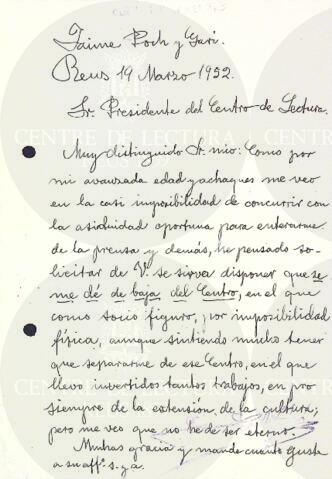 Jaime Poch y Garí.
Reus 19 Marzo 1952.
Sr. Presidente del Centro de Lectura.
Muy distinguido Sr. mio: Como por
mi avanzada edad y achaques me veo
en la casi imposibilidad de concurrir con
la asiduidad oportuna para enterarme
de la prensa y demás, he pensado so-
licitar de V. se sirva disponer que se
me dé de baja del Centro, en el que
como socio figuro, por imposibilidad
física, aunque sintiendo mucho tener
que separarme de ese Centro, en el que
llevo invertidos tantos trabajos, en pro
siempre de la extensión de la cultura;
pero me veo que no he de ser eterno.
Muchas gracias y mande cuanto gusta
a su aff.º s.s.
CENTRE DE LECTURA